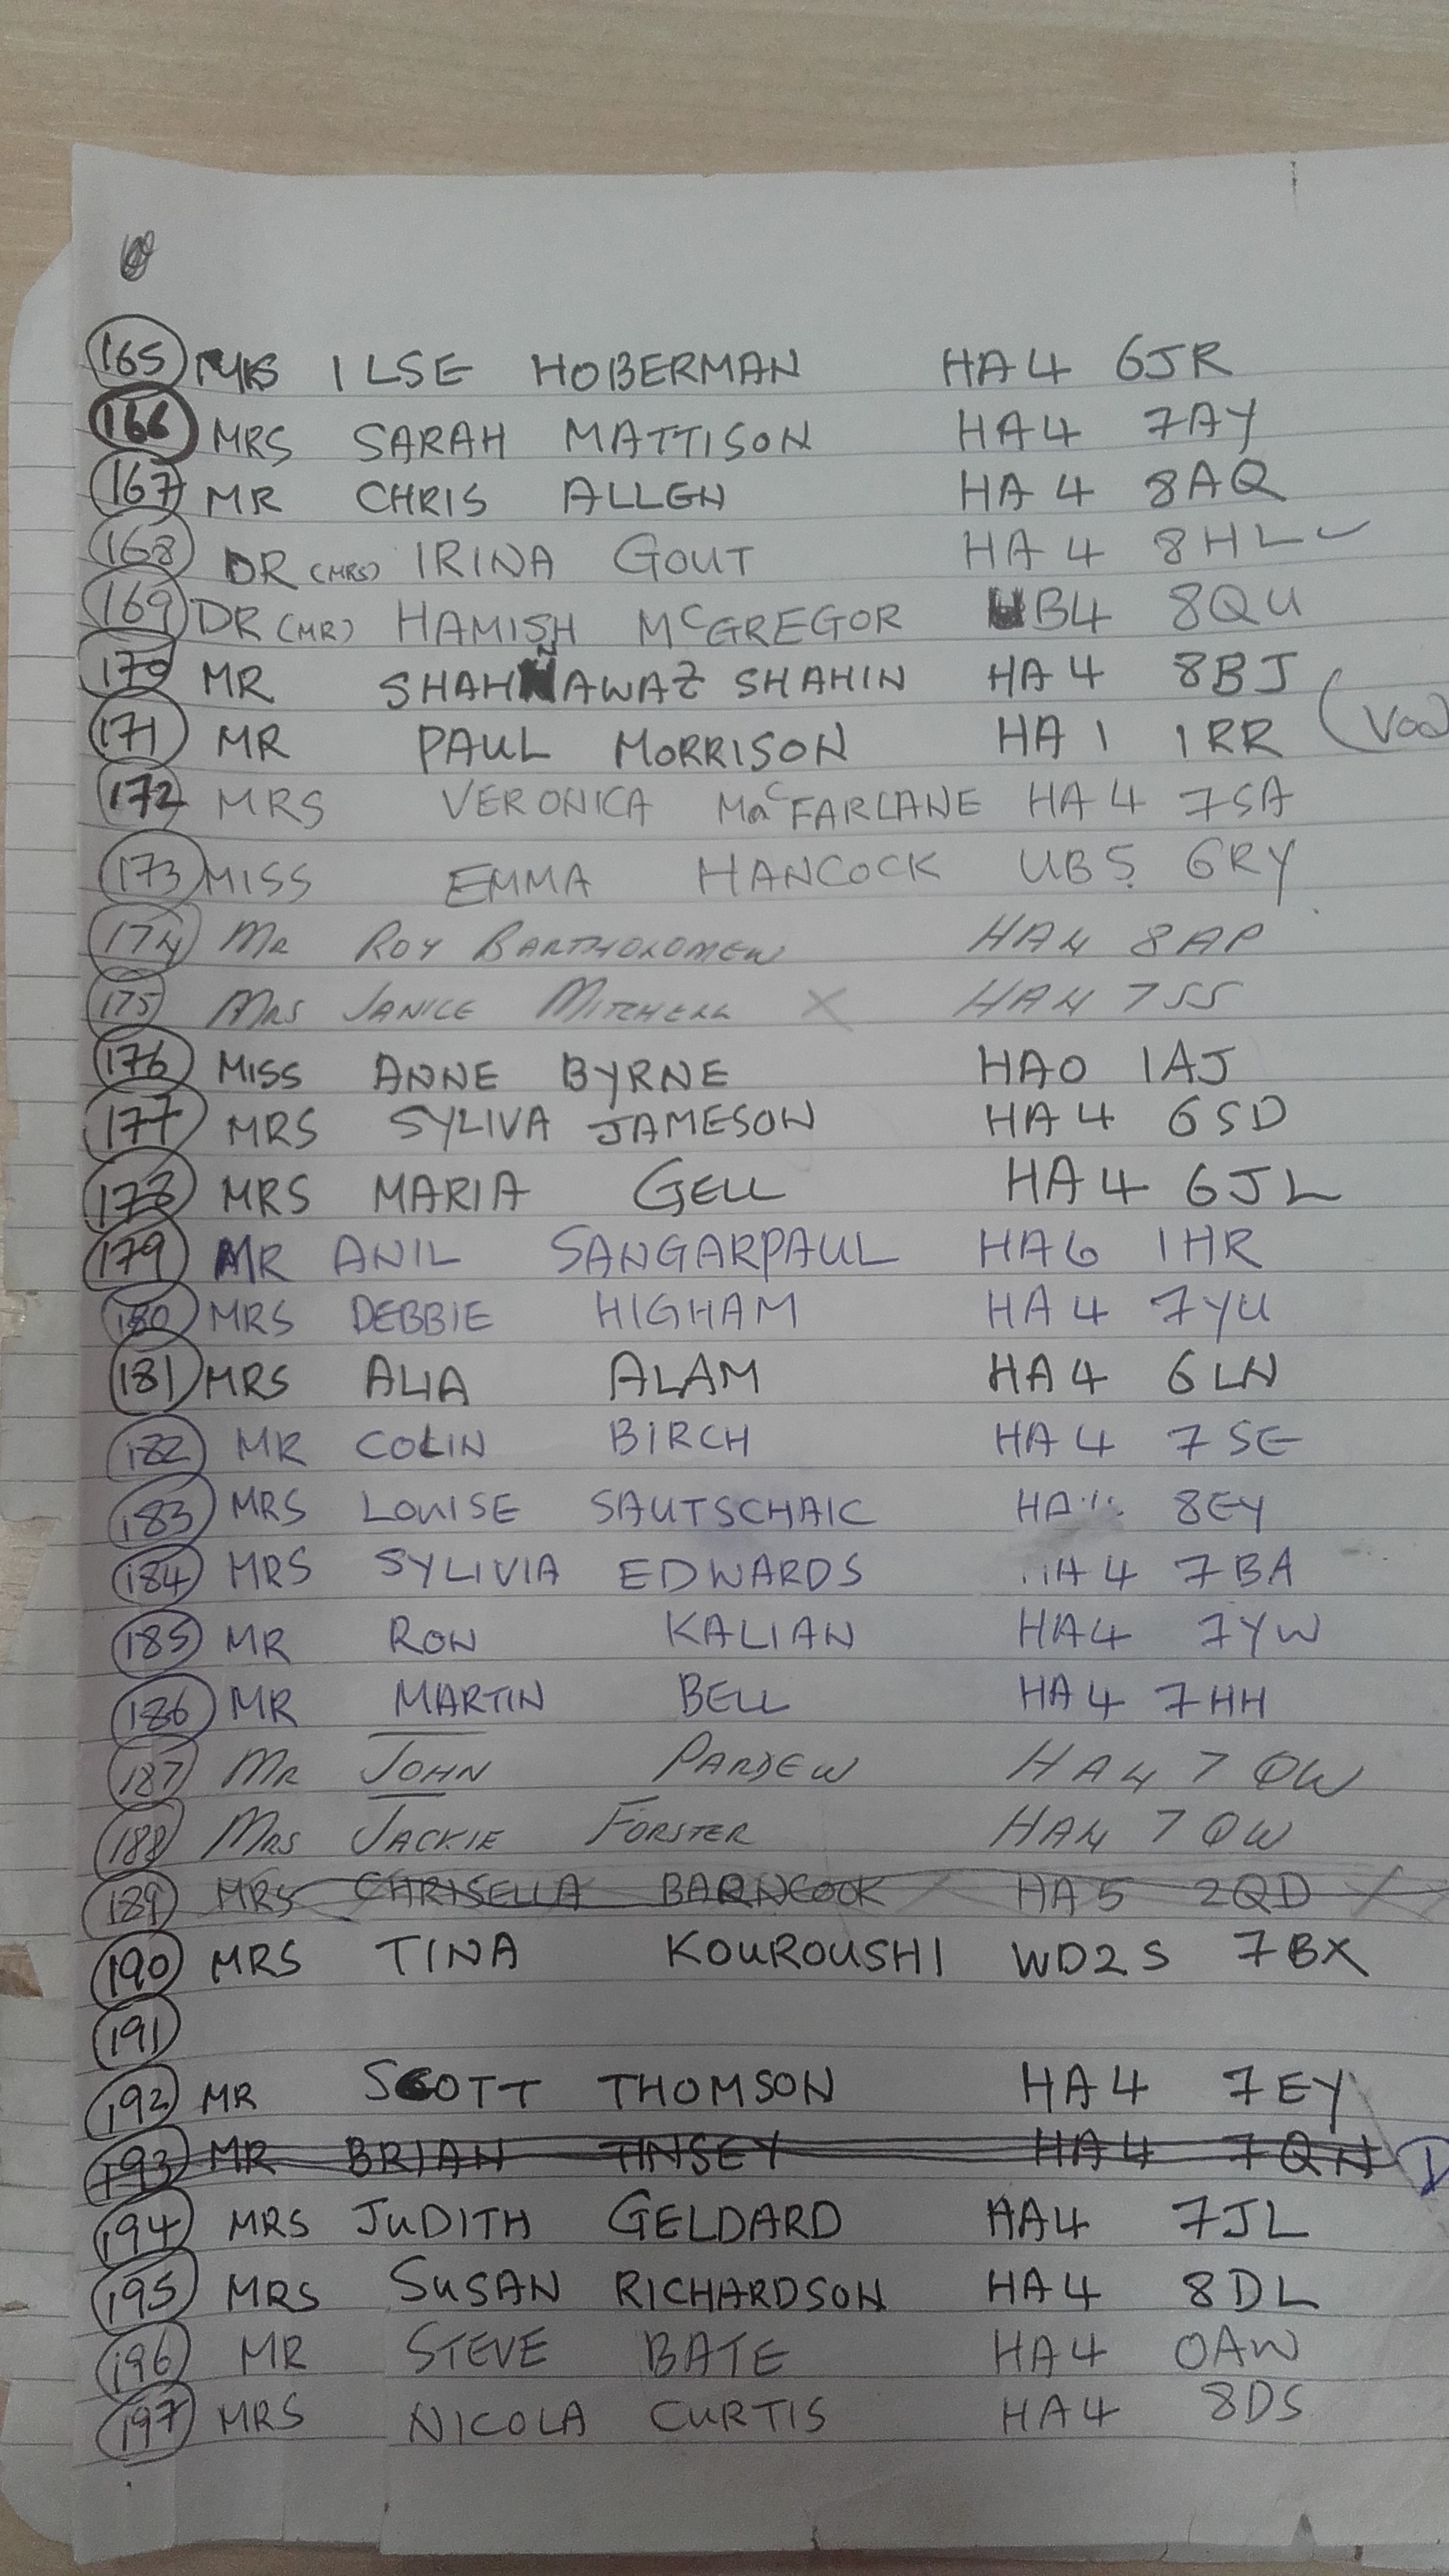 165 MRS ILSE HOBERMAN HA4 6JR
166 MRS SARAH MATTISON HA4 7AY
167 MR CHRIS ALLEN HA4 8AQ
168 DR (MRS) IRINA GOUT HA4 8HL
169 DR (MR) HAMISH McGREGOR UB4 8QU
170 MR SHAHNAWAZ SHAHIN HA4 8BJ
171 MR PAUL MORRISON HA1 1RR
172 MRS VERONICA MacFARLANE HA4 7SA
173 MISS EMMA HANCOCK UB5 6RY
174 MR ROY BARTHOLOMEW HA4 8AP
175 MRS JANICE MITCHELL X HA4 7SS
176 MISS ANNE BYRNE HA0 1AJ
177 MRS SYLIVA JAMESON HA4 6SD
178 MRS MARIA GELL HA4 6JL
179 MR ANIL SANGARPAUL HA6 1HR
180 MRS DEBBIE HIGHAM HA4 7YU
181 MRS ALIA ALAM HA4 6LN
182 MR COLIN BIRCH HA4 7SE
183 MRS LOUISE SAUTSCHAIC 8EY
184 MRS SYLIVIA EDWARDS HA4 7BA
185 MR RON KALIAN HA4 7YW
186 MR MARTIN BELL HA4 7HH
187 MR JOHN PARDEW HA4 7QW
188 MRS JACKIE FORSTER HA4 7QW
189 MRS CHRISELLA BARNCOOK HA5 2QD
190 MRS TINA KOUROUSHI WD25 7BX
191
192 MR SCOTT THOMSON HA4 7EY
193 MR BRIAN TINSEY HA4 7QN
194 MRS JUDITH GELDARD HA4 7JL
195 MRS SUSAN RICHARDSON HA4 8DL
196 MR STEVE BATE HA4 0AW
197 MRS NICOLA CURTIS HA4 8DS